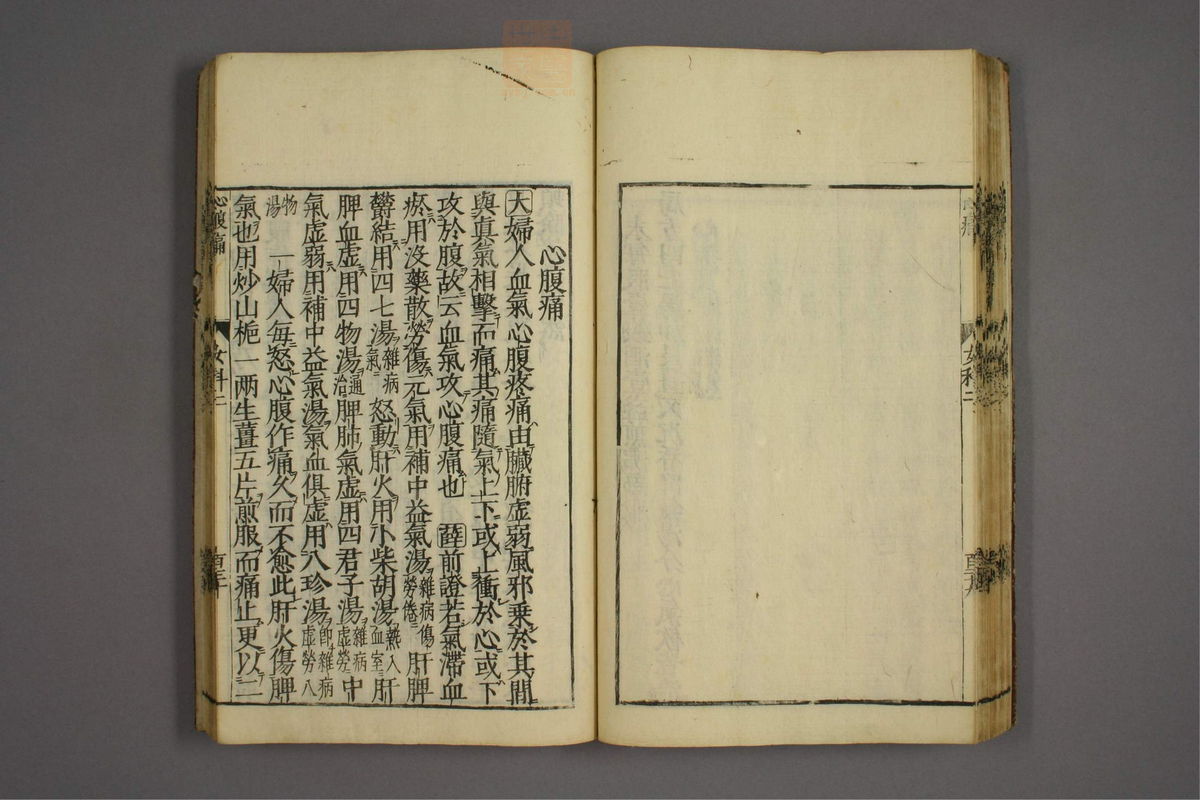 女科二
心腹痛
大婦人血氣心腹疼痛由臟腑虛弱風邪乗於其間
與真氣相擊而痛其痛隨氣上下或上衝於心或下
攻於腹故云血氣攻心腹痛也 薛前證若氣滞血
瘀用没藥散勞傷元氣用補中益氣湯雜病傷勞倦肝脾
鬱結用四七湯雜病氣怒動肝火用小柴胡湯熱入血室肝
脾血虛用四物湯通治脾肺氣虛用四君子湯雜病虛勞中
氣虛弱用補中益氣湯氣血俱虛用八珍湯即雜病虛勞八
物湯一婦人每怒心腹作痛久而不愈此肝火傷脾
氣也用炒山梔一两生薑五片煎服而痛止更以二
心腹痛
女科二
百三十